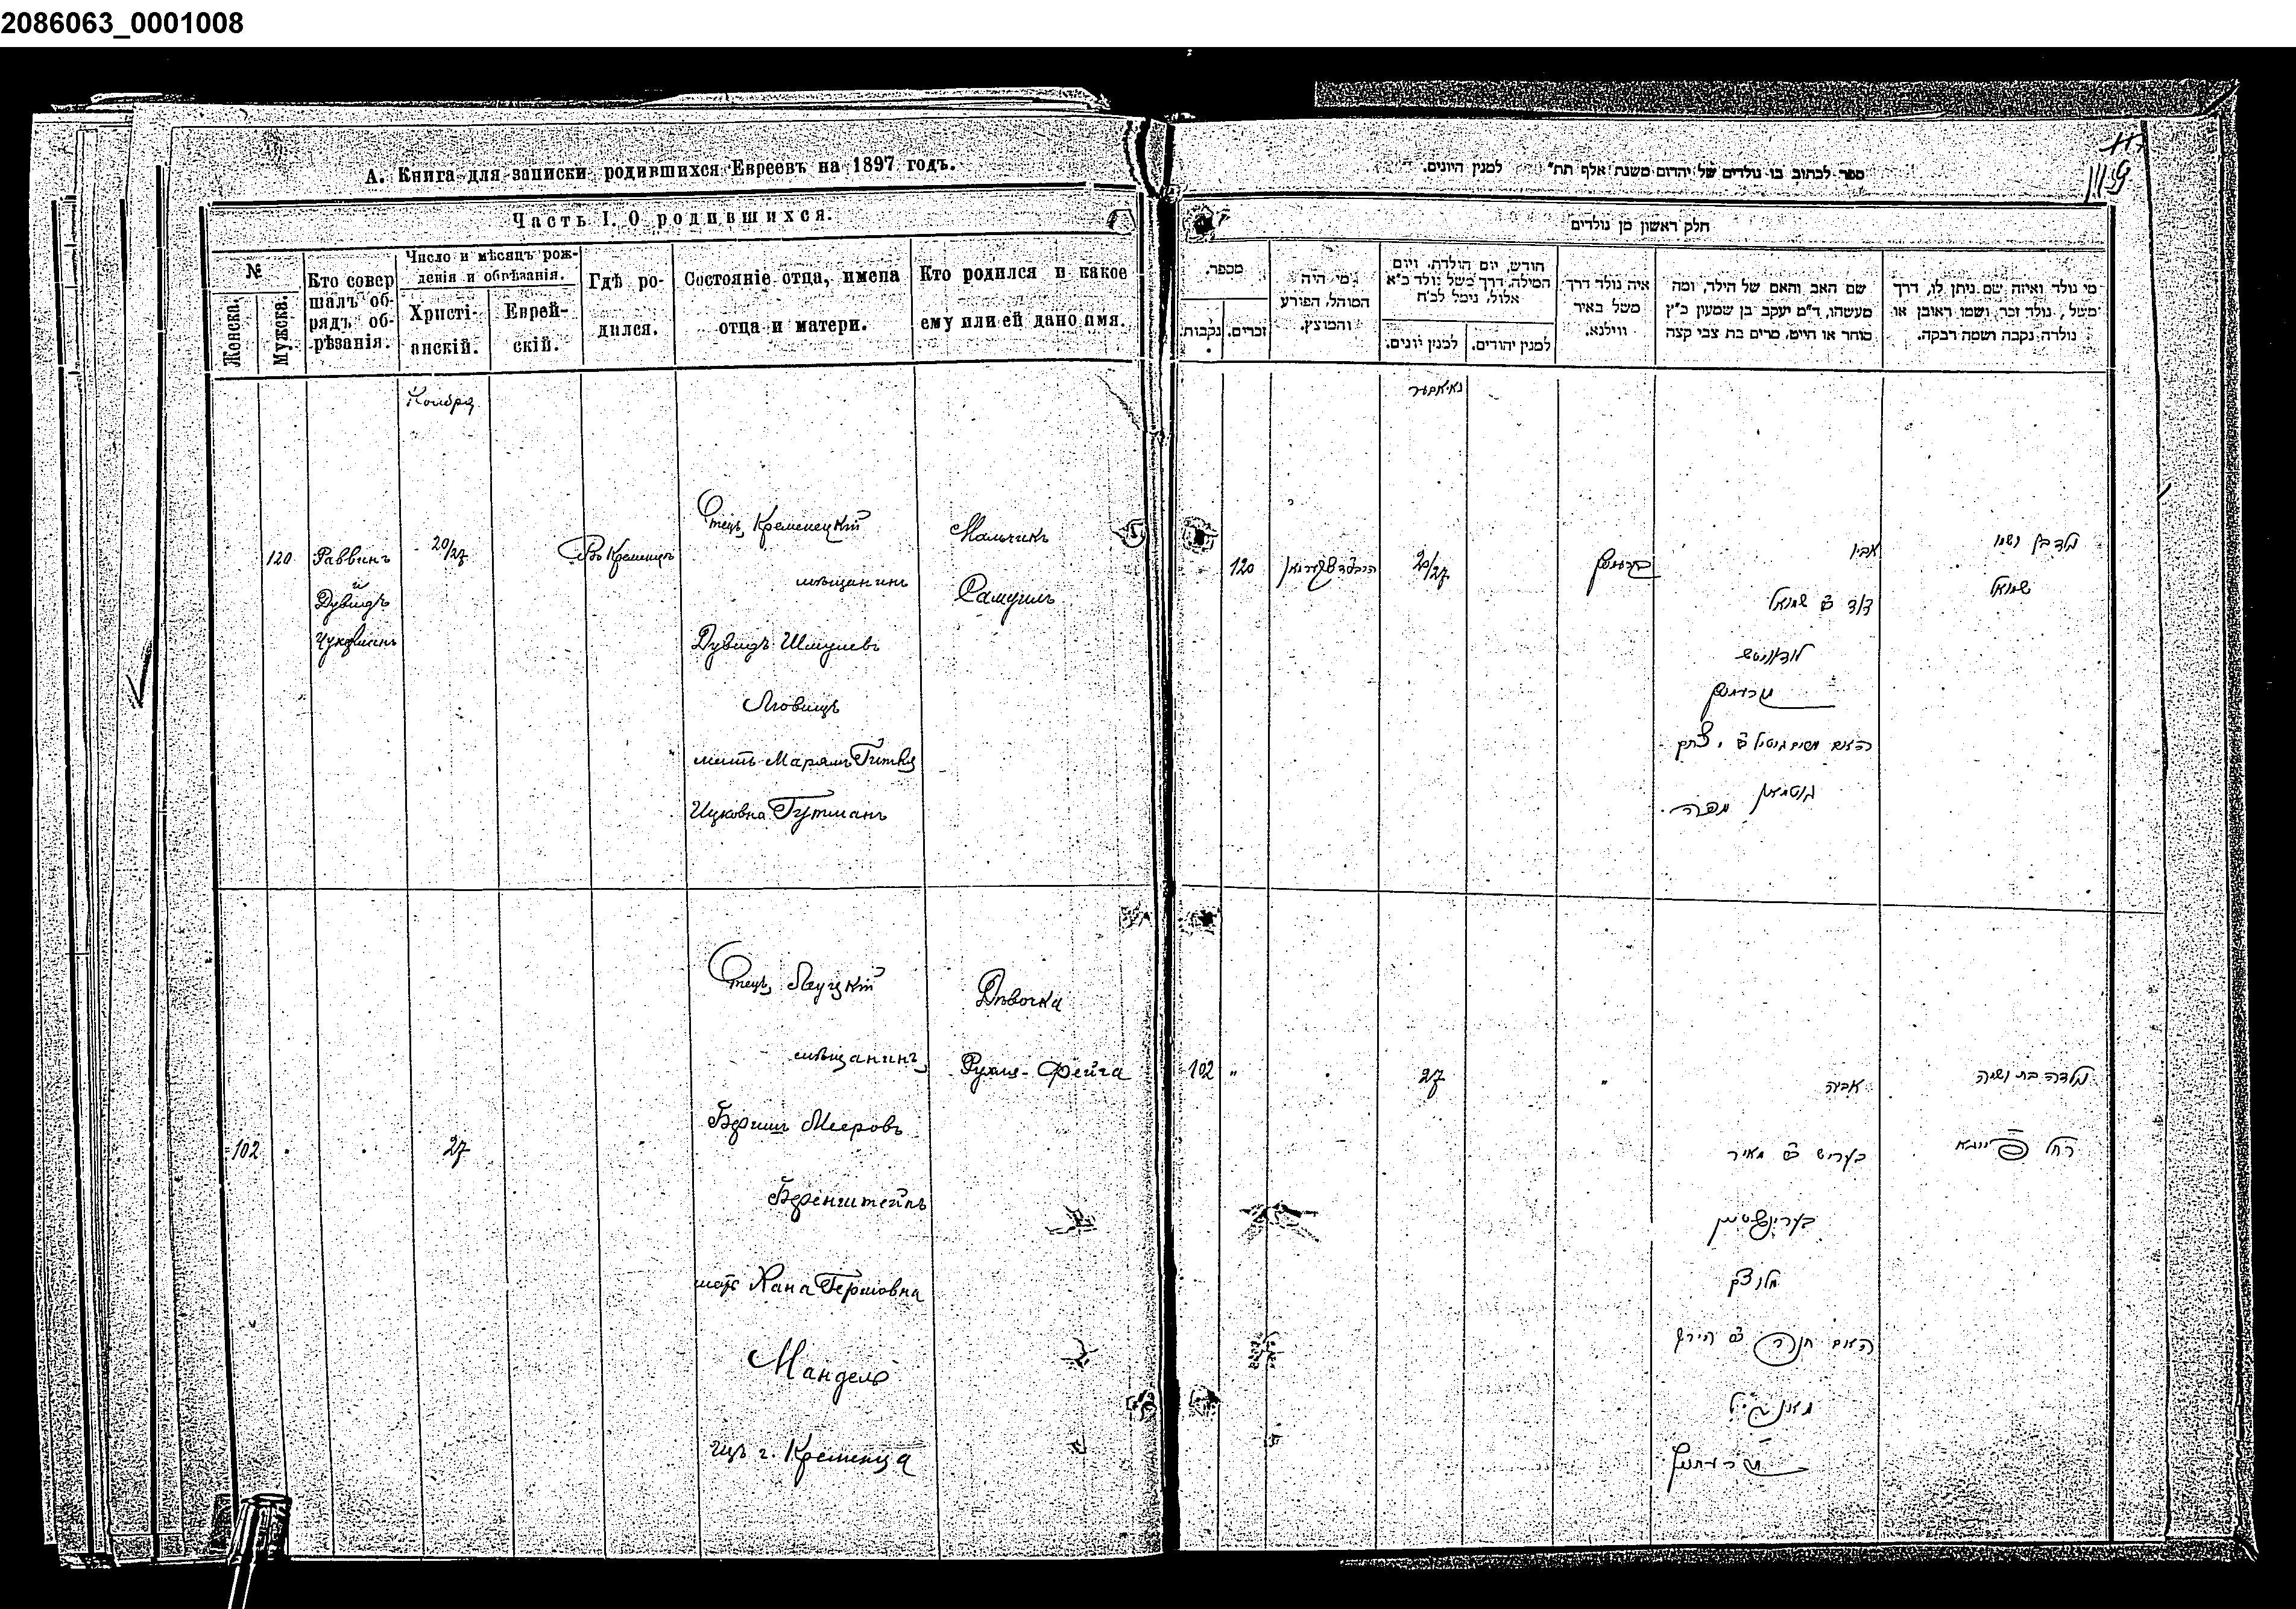 2086063_0001008
А. Книга для записки родившихся Евреевъ на 1897 годъ.
Часть I. О родившихся.
№
Женска.
Мужска.
Кто совер
шалъ об-
рядъ об-
рѣзанія.
Число и мѣсяцъ рож-
денія и обрѣзанія.
Христі-
анскій.
Еврей-
скій.
Гдѣ ро-
дился.
Состояніе отца, имена
отца и матери.
Кто родился и какое
ему или ей дано имя.
Ноября
120
Раввинъ
и
Дувидъ
20/27
Въ Кременцѣ
Отецъ Кременецкій
мѣщанинъ
Дувидъ Шмулевъ
мать Марямъ Гитля
Ицковна Гутманъ
Мальчикъ
Самуилъ
102
27
Отецъ Луцкій
мѣщанинъ
Беришъ Мееровъ
Беренштейнъ
мать Хана Гершовна
Мандель
изъ г. Кременца
Дѣвочка
Рухля-Фейга
ספר לכתוב בו נולדים של יהדים משנת אלף תת״ למנין היונים.
חלק ראשון מן נולדים
מספר.
נקבות
זכרים.
מי היה
המוהל, הפורע
והמוצץ.
חודש, יום הולדת, ויום
המילה, דרך משל נולד כ״א
אלול, נימל לכ״ח
למנין יונים.
למנין יהודים.
איה נולד דרך
משל באיר
ווילנא.
שם האב והאם של הילד, ומה
מעשהו, ד״מ יעקב בן שמעון כ״ץ
סוחר או חייט, מרים בת צבי קצה
מי נולד ואיזה שם ניתן לו, דרך
משל, נולד זכר ושמו ראובן או
נולדה נקבה ושמה רבקה.
נאיאבער
120
20/27
אביו
דוד ב״ר שמואל
גוטמאן
נולד בן ושמו
שמואל
102 "
27
"
אביה
בעריש ב״ר מאיר
בערינשטיין
נולדה בת ושמה
רחל פייגא